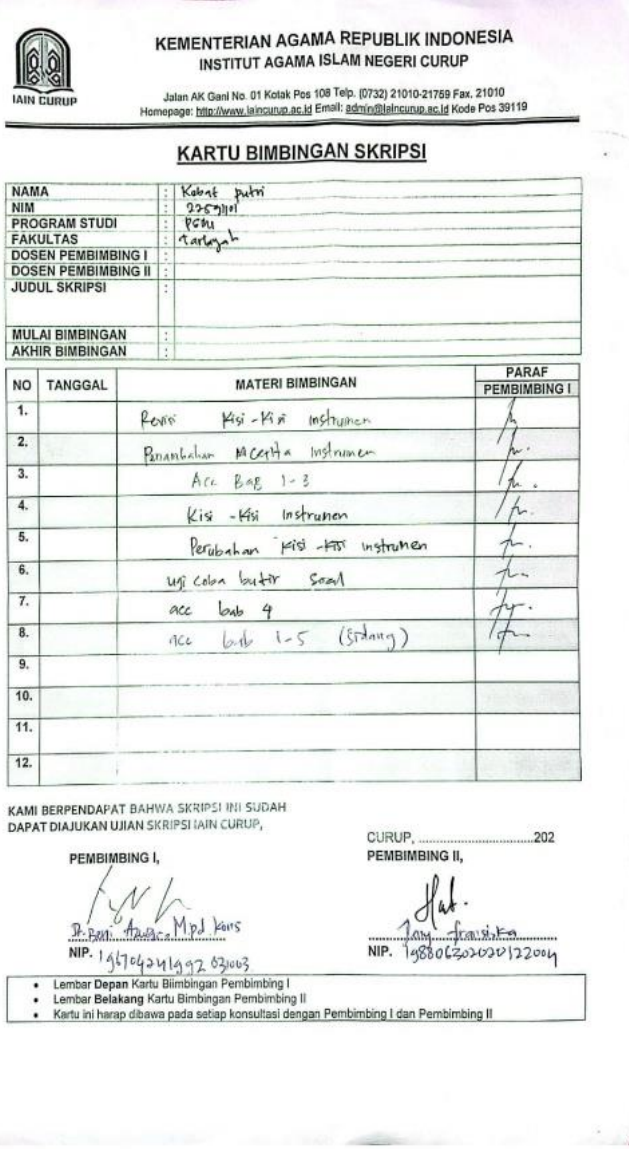 IAIN CURUP
KEMENTERIAN AGAMA REPUBLIK INDONESIA
INSTITUT AGAMA ISLAM NEGERI CURUP
Jalan AK Gani No. 01 Kotak Pos 108 Telp. (0732) 21010-21759 Fax. 21010
Homepage: http://www.iaincurup.ac.id Email: admin@iaincurup.ac.id Kode Pos 39119
KARTU BIMBINGAN SKRIPSI
NAMA : Kobat putri
NIM :
PROGRAM STUDI : PGMI
FAKULTAS : tarbiyah
DOSEN PEMBIMBING I :
DOSEN PEMBIMBING II :
JUDUL SKRIPSI :
MULAI BIMBINGAN :
AKHIR BIMBINGAN :
NO TANGGAL MATERI BIMBINGAN PARAF
PEMBIMBING I
1. Revisi Kisi-Kisi Instrumen
2. Instrumen
3. Acc Bab 1-3
4. Kisi-Kisi Instrumen
5. Perubahan Kisi-Kisi instrumen
6. uji coba butir soal
7. acc bab 4
8. acc bab 1-5 (Sidang)
9.
10.
11.
12.
KAMI BERPENDAPAT BAHWA SKRIPSI INI SUDAH
DAPAT DIAJUKAN UJIAN SKRIPSI IAIN CURUP,
CURUP, ................................202
PEMBIMBING I,
PEMBIMBING II,
Dr. Beni Azwar, M.pd Kons
fransiska
NIP. 196704241992031003
NIP. 198806302020122004
• Lembar Depan Kartu Biimbingan Pembimbing I
• Lembar Belakang Kartu Bimbingan Pembimbing II
• Kartu ini harap dibawa pada setiap konsultasi dengan Pembimbing I dan Pembimbing II